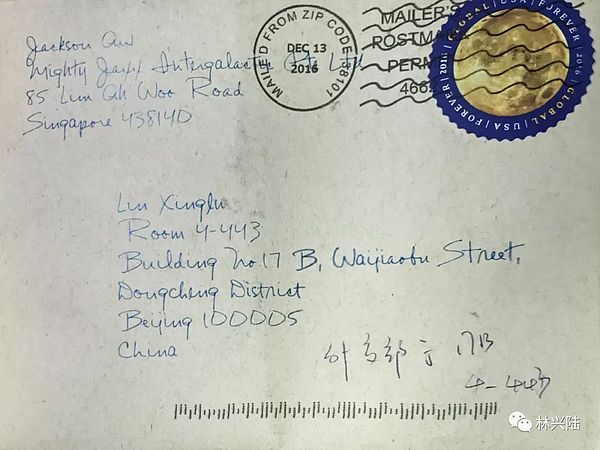 Jackson Aw
Mighty Jaxx Intergalactic Pte Ltd
85 Lim Ah Woo Road
Singapore 438140
MAILED FROM ZIP CODE 98101
DEC 13
2016
MAILER'S
POSTMA
PERM
466
GLOBAL | USA | FOREVER | 2016 | GLOBAL | USA | FOREVER | 2016
Lin Xinglu
Room 4-443
Building No.17 B, Waijiaobu Street,
Dongcheng District
Beijing 100005
China
外交部 17B
4-443
林兴陆